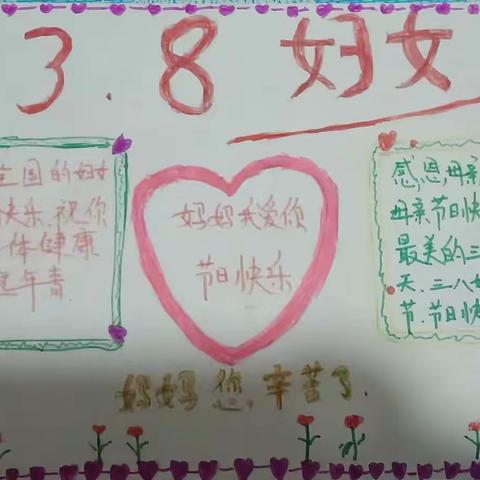 3.8 妇女
全国的妇女
快乐.祝你
体健康
年青.
妈妈我爱你
节日快乐
感恩母亲
母亲节日快
最美的三
天.三八妇
节.节日快
妈妈您辛苦了.